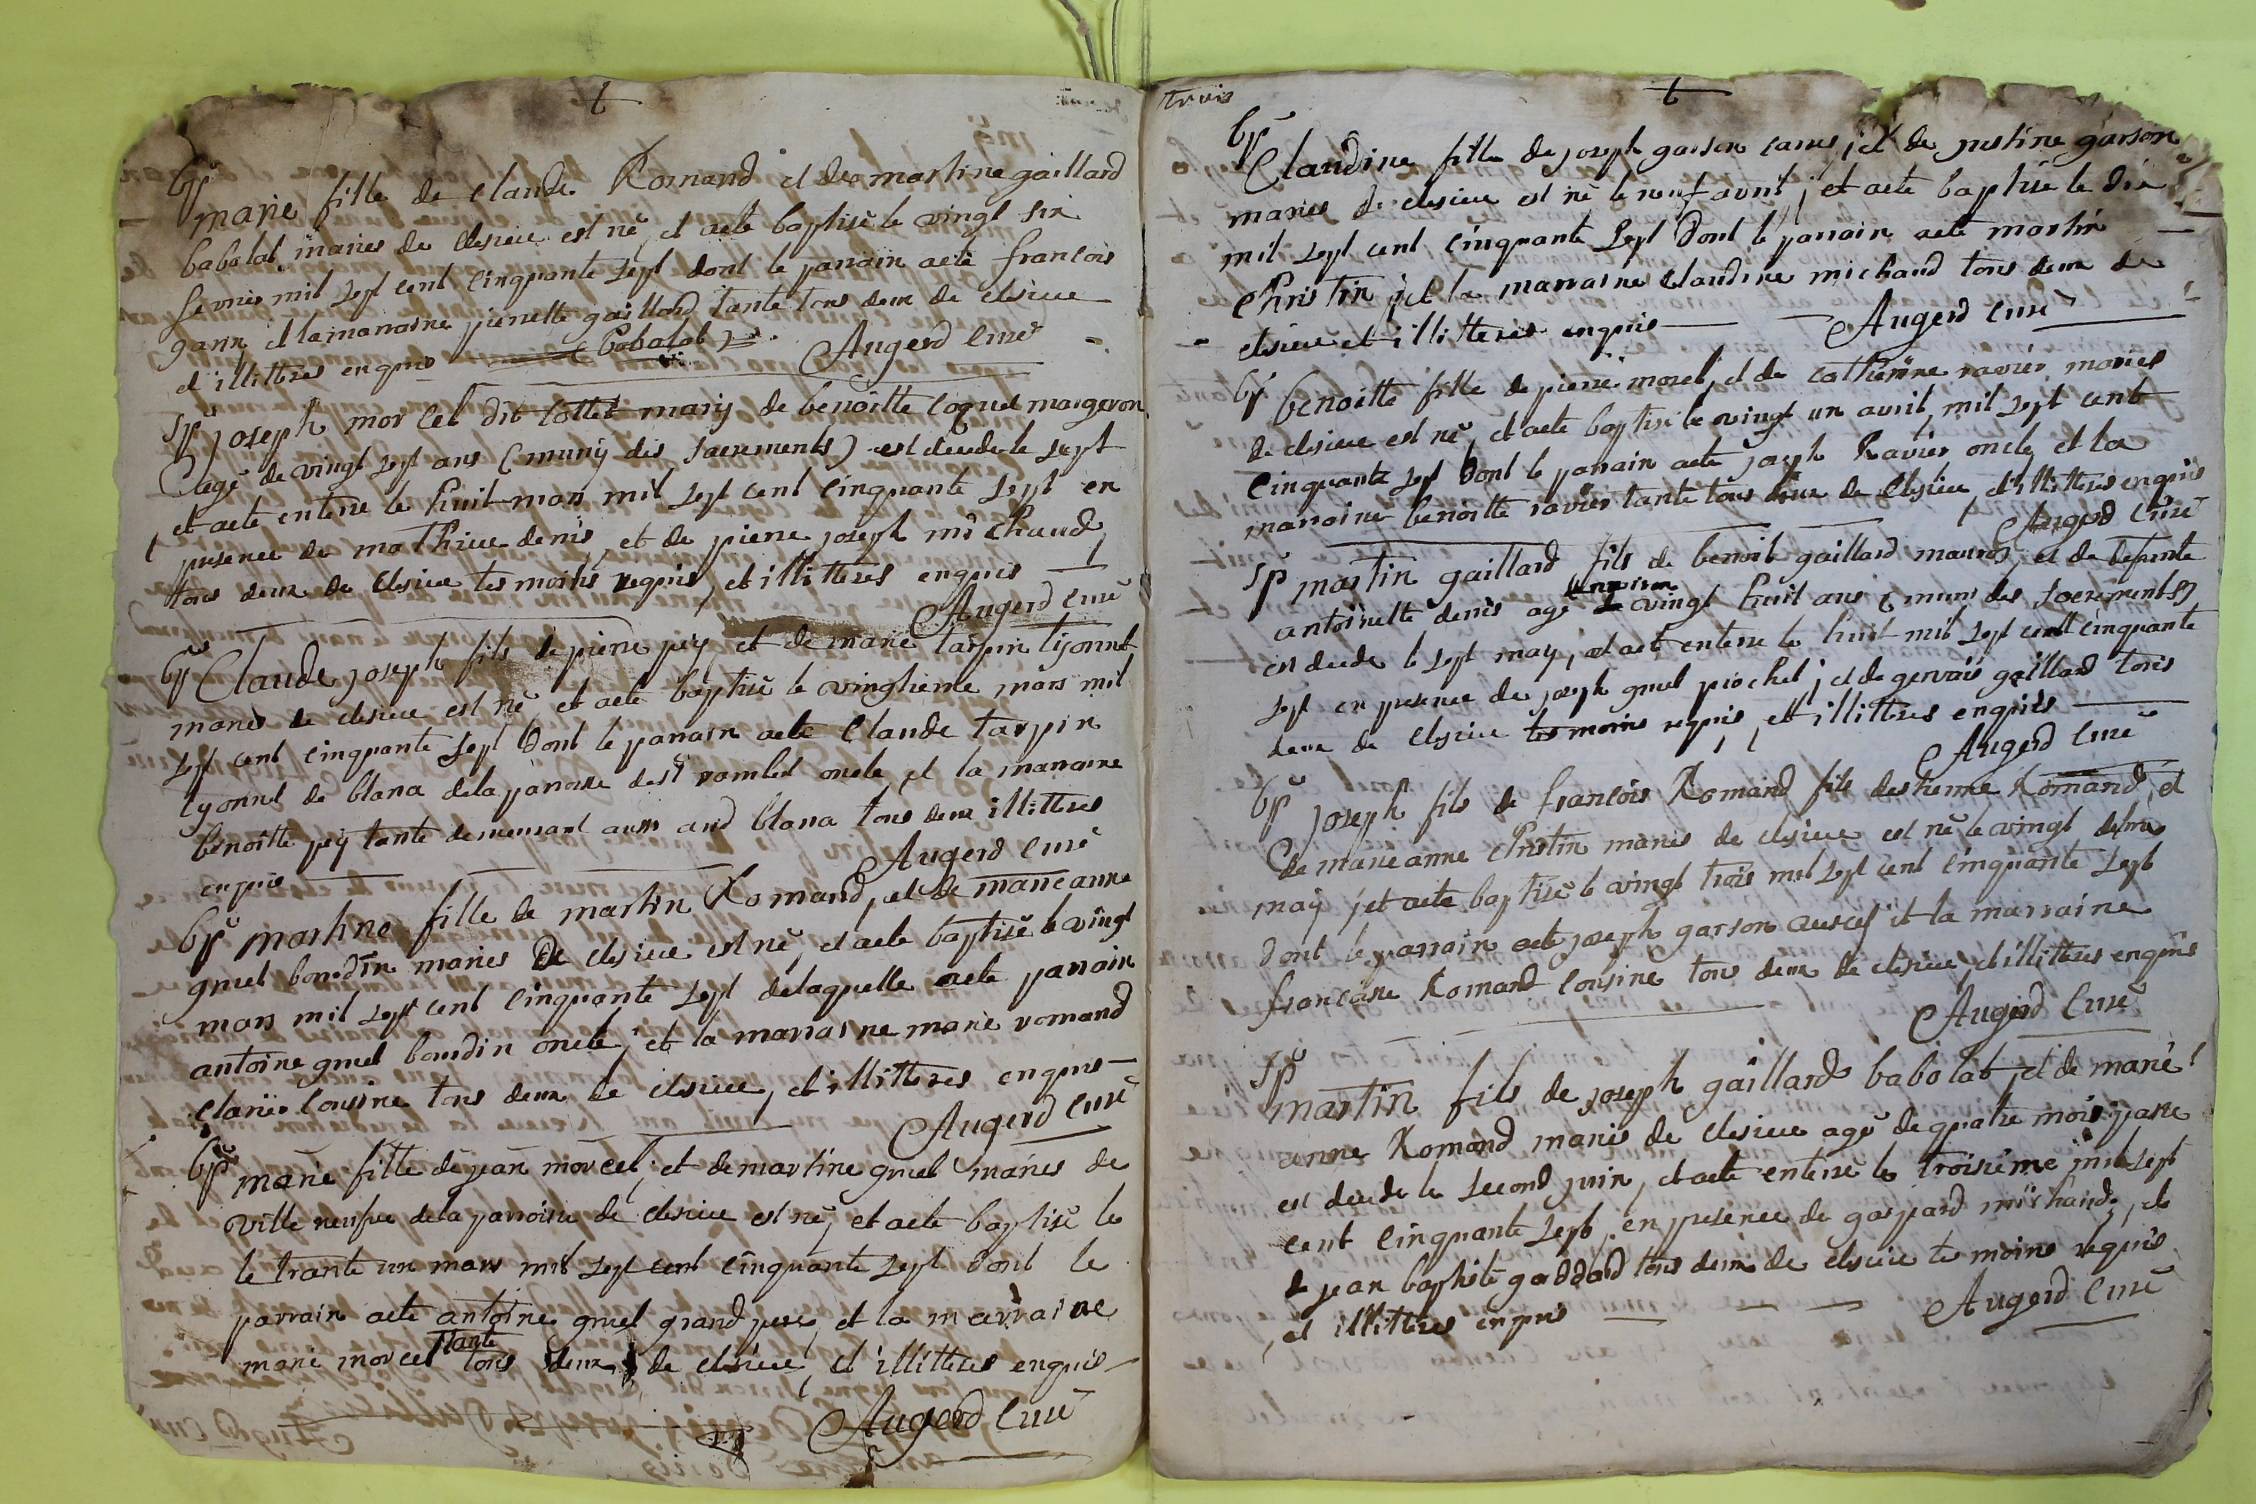 t
bp
marie fille de claude Romand et de martine gaillard
babolat maries de clesieu est né, et aeté baptisé le vingt six
fevrier mil sept cent cinquante sept dont le parrain aeté francois
garin, et la marraine pierrette gaillard tante tous deux de clesieu
et illittres enquis (babolat) Augerd Curé
sp joseph morcel dit tottet mary de benoitte coquet margeron
agé de vingt sept ans (muny des sacrements) est decede le sept
et aeté enterré le huit mars mil sept cent cinquante sept en
presence de mathieu denis, et de pierre joseph michaud
tous deux de clesieu tesmoins requis, et illittres enquis
Augerd Curé
bp Claude joseph fils de pierre pey et de marie tarpin lyonnet
maries de clesieu est né et aeté baptisé le vingtieme mars mil
sept cent cinquante sept dont le parrain aeté Claude tarpin
lyonnet de blana dela paroisse de st rambert oncle, et la marraine
benoitte pey tante demeurant aussi aud blana tous deux illittres
enquis Augerd Curé
bp martine fille de martin Romand, et de marie anne
gruel boudin maries de clesieu est né, et aeté baptisé le vingt
mars mil sept cent cinquante sept de laquelle aeté parrain
antoine gruel boudin oncle, et la marraine marie romand
clarier cousine tous deux de clesieu, et illittres enquis
Augerd Curé
bp
marie fille de jean morcel, et de martine gruel maries de
ville neufve dela parroisse de clesieu est né, et aeté baptisé le
le trante un mars mil sept cent cinquante sept dont le
parrain aeté antoine gruel grand pere, et la marraine
marie morcel tante tous deux de clesieu, et illittres enquis
Augerd Curé
trois
t
bp
Claudine fille de joseph garson et de justine garson
maries de clesieu est né le neuf avril, et aeté baptisé le dix
mil sept cent cinquante sept dont le parrain aeté martin
christin, et la marraine claudine michaud tous deux de
clesieu et illitteres enquis Augerd Curé
bp benoitte fille de pierre morel, et de catherine ravier maries
de clesieu est né, et aeté baptisé le vingt un avril mil sept cent
cinquante sept dont le parrain aeté joseph Ravier oncle, et la
marraine benoitte ravier tante tous deux de clesieu, et illittres enquis
Augerd Curé
sp martin gaillard fils de benoit gaillard et de defunte
antoinette denis agé environ vingt huit ans (muni des sacrements)
est decede le sept may, et aeté enterré le huit mil sept cent cinquante
sept en presence de joseph gruel piochel, et de gervais gaillard tous
deux de clesieu tesmoins requis, et illittres enquis
Augerd Curé
bp joseph fils de francois Romand fils destienne Romand, et
de marie anne christin maries de clesieu est né le vingt deux
may, et aeté baptisé le vingt trois mil sept cent cinquante sept
dont le parrain aeté joseph garson et la marraine
francoise Romand cousine tous deux de clesieu, et illittres enquis
Augerd Curé
sp
martin fils de joseph gaillard babolat, et de marie
anne Romand maries de clesieu agé de quatre mois
est decede le second juin, et aeté enterré le troisiéme mil sept
cent cinquante sept, en presence de gaspard michaud, et
de jean baptiste goddard tous deux de clesieu tesmoins requis
et illittres enquis Augerd Curé